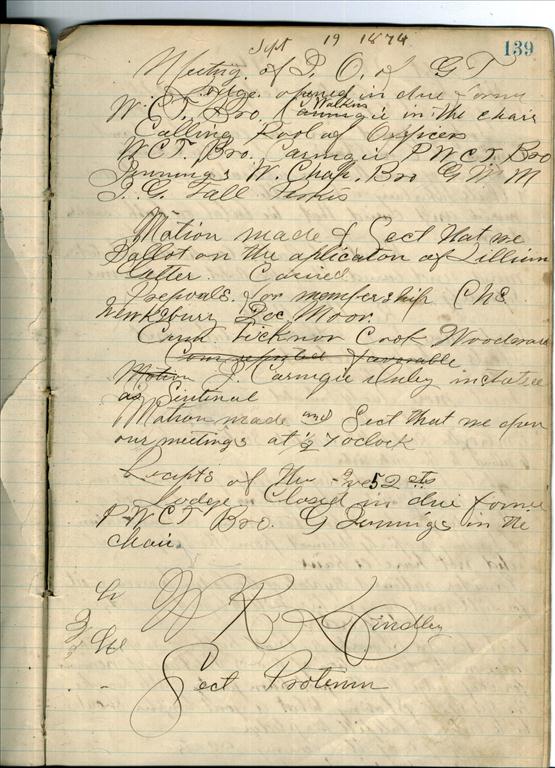 139
Sept 19 1874
Meeting of I. O. of G T
Lodge opened in due forme
W. C. T. Bro. Carnagie Walkins in the chair
Calling Rool of Officers
W C T. Bro. Carnagie P W C T. Bro
Jennings W. Chap. Bro G W M
I. G.
Motion made & Sect that we
Ballot on the aplicaton of Lillium
Latter. Caried
Preposals for membership Chs
Newkburr Doc Moor
Com Ticknor Cook Woodward
Com reported favorable
Motion J. Carnagie duley instaled
as Sentinal
Motion made and Sect that we open
our meetings at ½ 7 oclock
Recipts of the Eve 52 cts
Lodge Closed in due forme
P W C T Bro. G Jennings in the
chair
W R Kindley
Sect Protemm